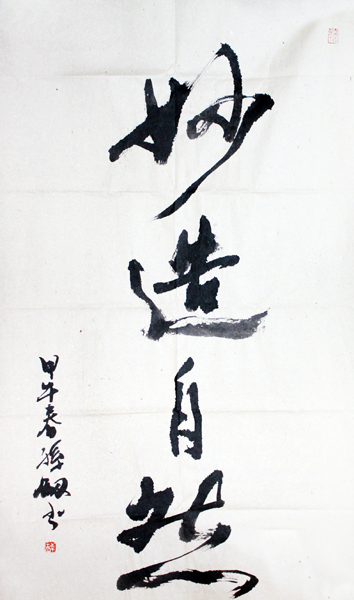 妙造自然
甲午春孫㓜书